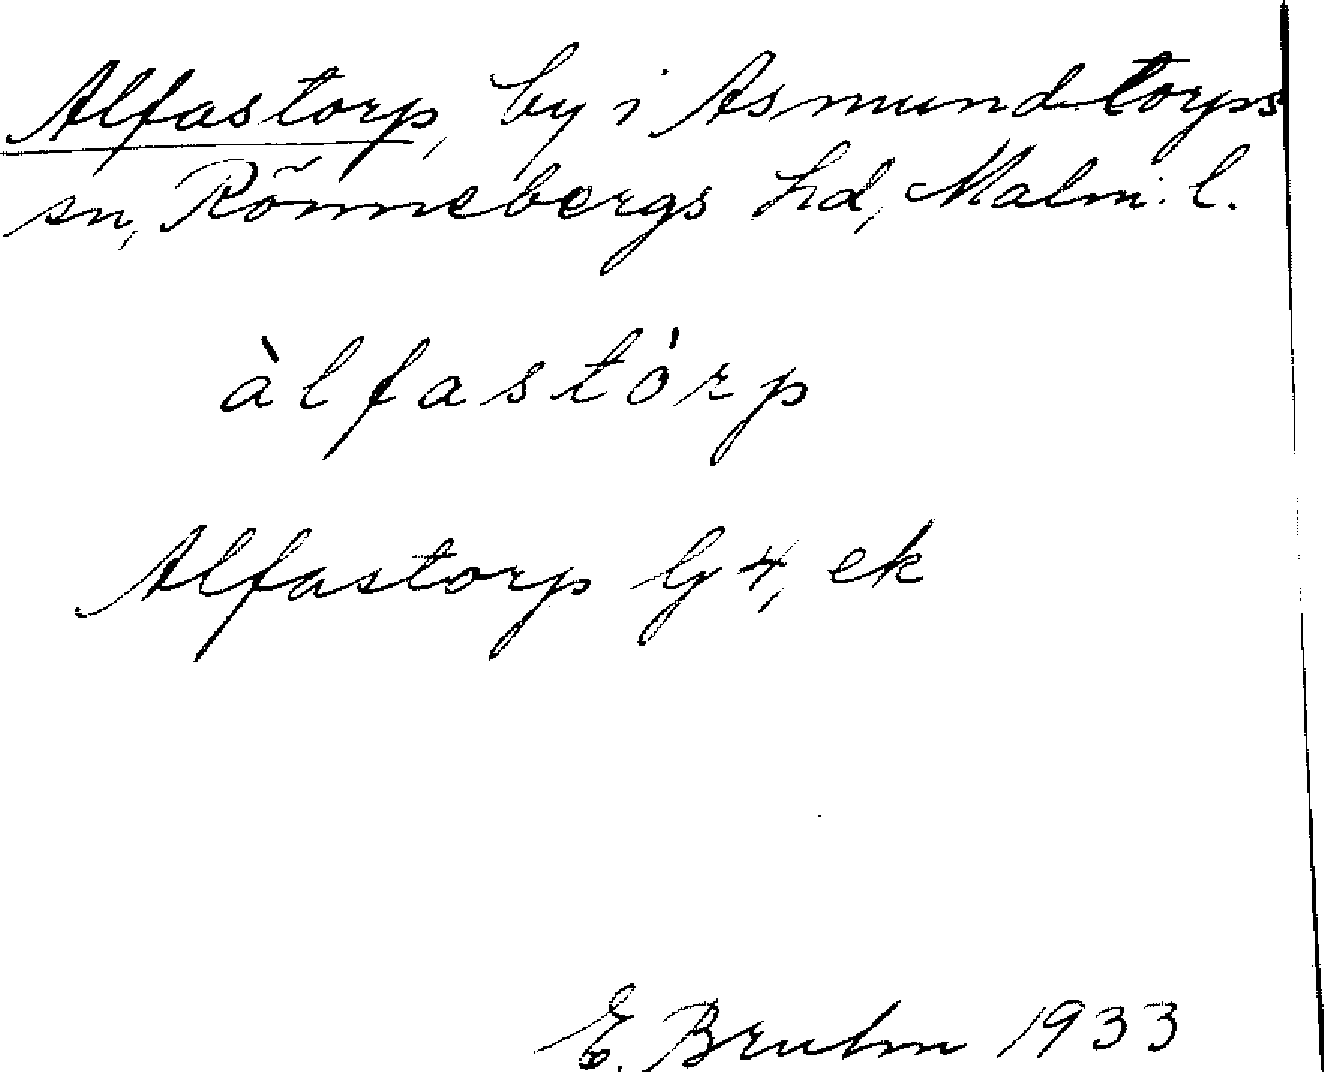 Alfastorp, by i Asmundtorps
sn, Rönnebergs hd, Malm. l.
àlfastórp
Alfastorp G 4, ek
E. Bruhn 1933